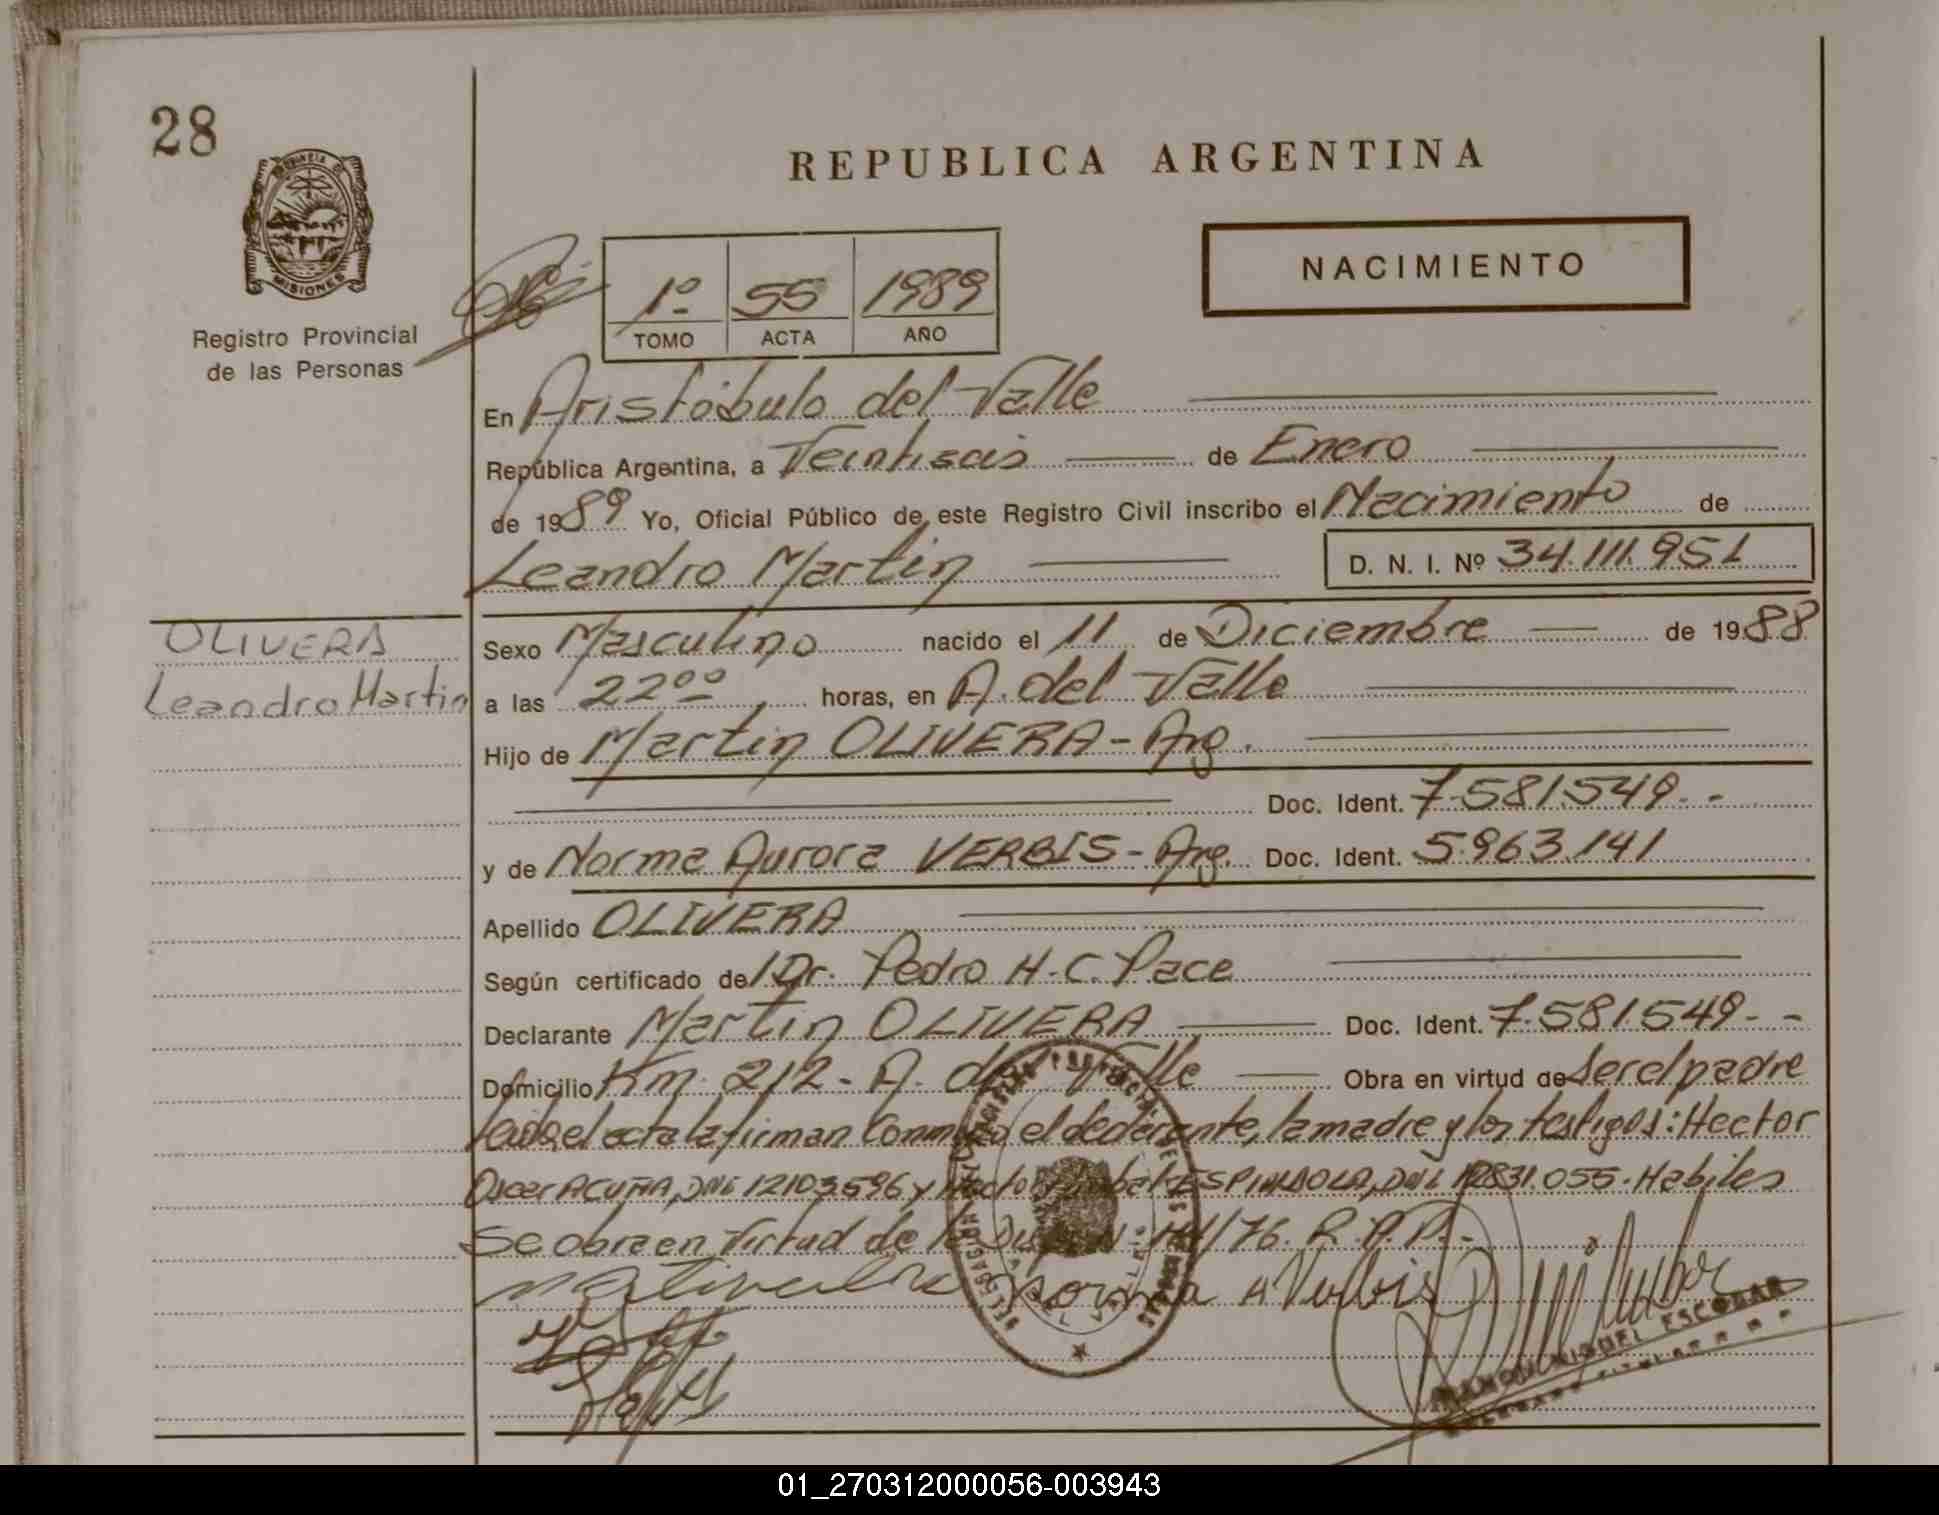 28
REPUBLICA ARGENTINA
PROVINCIA DE
MISIONES
Registro Provincial
de las Personas
1º 55 1989
TOMO ACTA AÑO
NACIMIENTO
En Aristóbulo del Valle
República Argentina, a Veintiseis de Enero
de 1989 Yo, Oficial Público de este Registro Civil inscribo el Nacimiento de
Leandro Martin D. N. I. Nº 34.111.951
OLIVERA
Leandro Martin
Sexo Masculino nacido el 11 de Diciembre de 1988
a las 22⁰⁰ horas, en A. del Valle
Hijo de Martin OLIVERA - Arg.
Doc. Ident. 7.581.549.-
y de Norma Aurora VERBIS - Arg. Doc. Ident. 5.963.141
Apellido OLIVERA
Según certificado del Dr. Pedro H. C. Pace
Declarante Martin OLIVERA Doc. Ident. 7.581.549.-
Domicilio Km. 212 - A. del Valle Obra en virtud de ser el padre
Leida el acta la firman Conmigo el declarante, la madre y los testigos: Hector
Oscar ACUÑA, DNI 12103596 y ESPINDOLA, DNI 12831.055. Habiles
Se obra en Virtud de la /76. R.P.P.-
Norma A Verbis
RAMON MIGUEL ESCOBAR
01_270312000056-003943